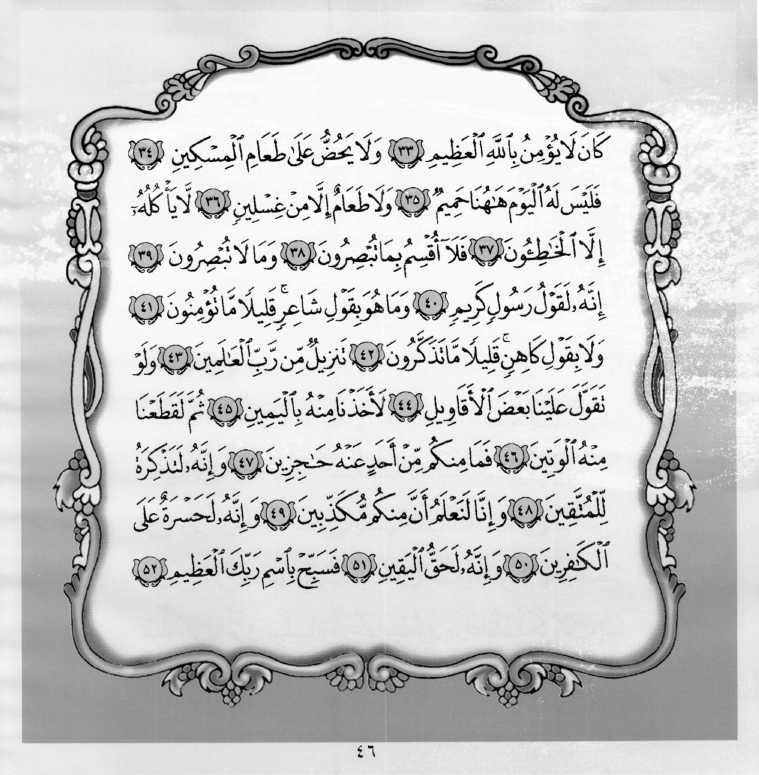 كَانَ لَا يُؤْمِنُ بِٱللَّهِ ٱلْعَظِيمِ ٣٣ وَلَا يَحُضُّ عَلَىٰ طَعَامِ ٱلْمِسْكِينِ ٣٤
فَلَيْسَ لَهُ ٱلْيَوْمَ هَٰهُنَا حَمِيمٌ ٣٥ وَلَا طَعَامٌ إِلَّا مِنْ غِسْلِينٍ ٣٦ لَّا يَأْكُلُهُۥٓ
إِلَّا ٱلْخَٰطِـُٔونَ ٣٧ فَلَآ أُقْسِمُ بِمَا تُبْصِرُونَ ٣٨ وَمَا لَا تُبْصِرُونَ ٣٩
إِنَّهُۥ لَقَوْلُ رَسُولٍ كَرِيمٍ ٤٠ وَمَا هُوَ بِقَوْلِ شَاعِرٍ ۚ قَلِيلًا مَّا تُؤْمِنُونَ ٤١
وَلَا بِقَوْلِ كَاهِنٍ ۚ قَلِيلًا مَّا تَذَكَّرُونَ ٤٢ تَنزِيلٌ مِّن رَّبِّ ٱلْعَٰلَمِينَ ٤٣ وَلَوْ
تَقَوَّلَ عَلَيْنَا بَعْضَ ٱلْأَقَاوِيلِ ٤٤ لَأَخَذْنَا مِنْهُ بِٱلْيَمِينِ ٤٥ ثُمَّ لَقَطَعْنَا
مِنْهُ ٱلْوَتِينَ ٤٦ فَمَا مِنكُم مِّنْ أَحَدٍ عَنْهُ حَٰجِزِينَ ٤٧ وَإِنَّهُۥ لَتَذْكِرَةٌ
لِّلْمُتَّقِينَ ٤٨ وَإِنَّا لَنَعْلَمُ أَنَّ مِنكُم مُّكَذِّبِينَ ٤٩ وَإِنَّهُۥ لَحَسْرَةٌ عَلَى
ٱلْكَٰفِرِينَ ٥٠ وَإِنَّهُۥ لَحَقُّ ٱلْيَقِينِ ٥١ فَسَبِّحْ بِٱسْمِ رَبِّكَ ٱلْعَظِيمِ ٥٢
٤٦